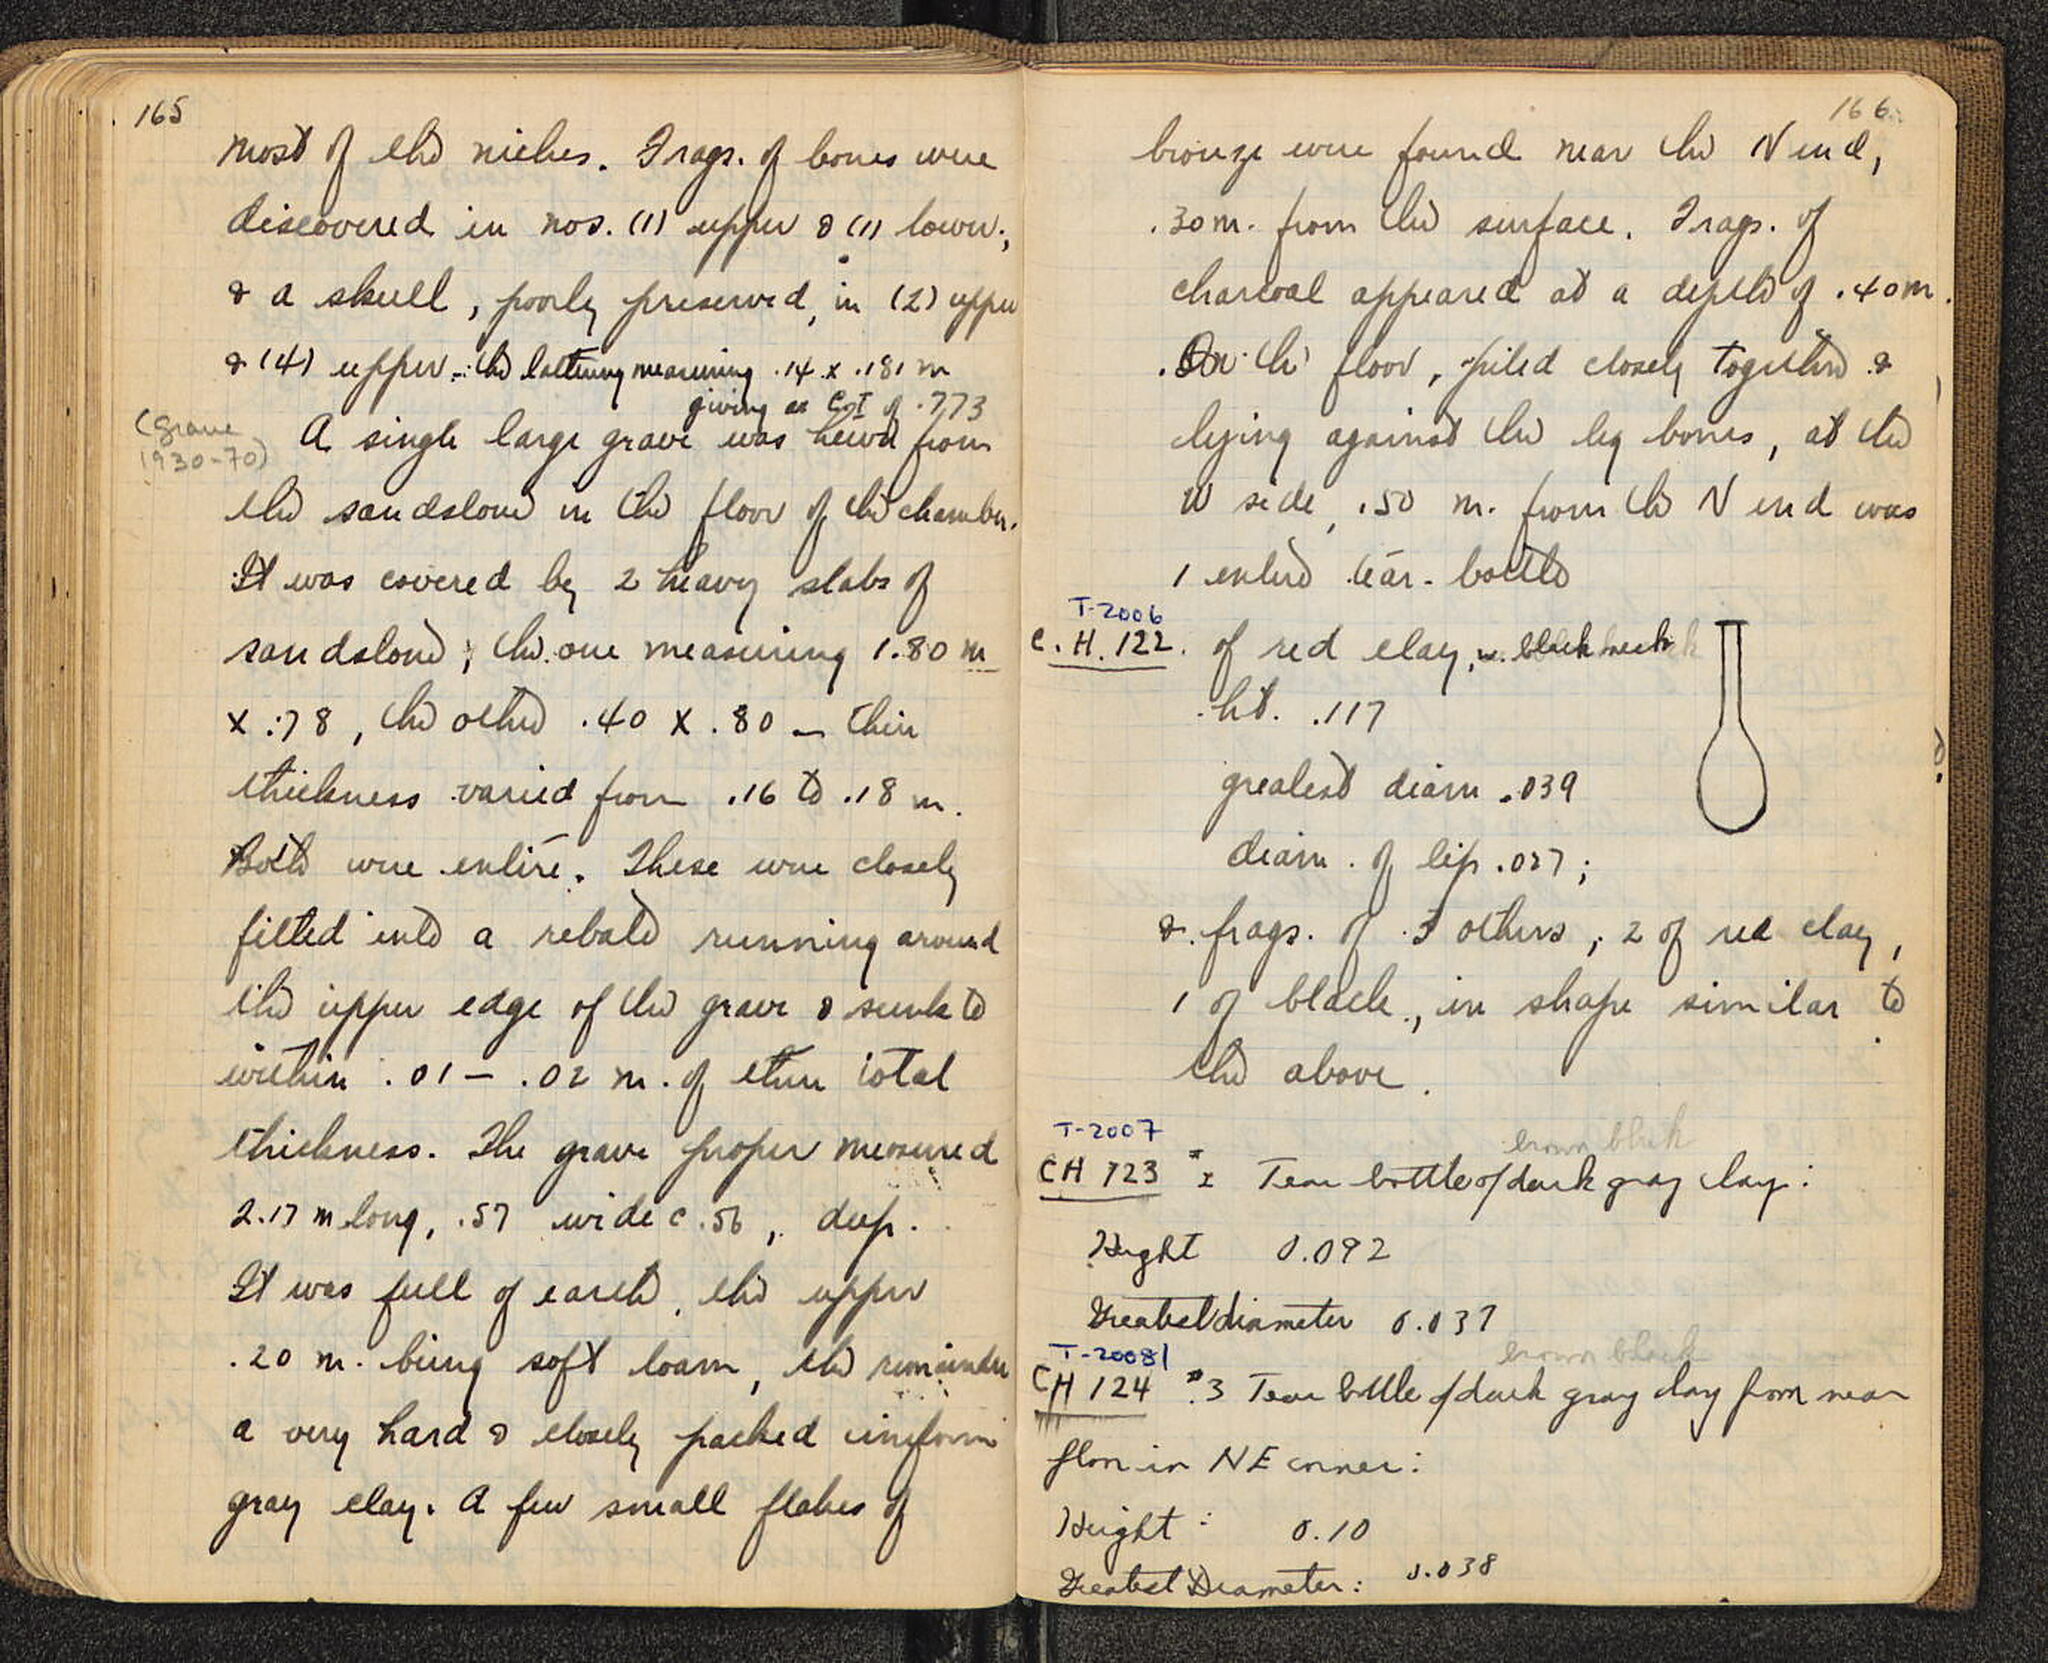 165
most of the niches. Frags. of bones were
discovered in nos. (1) upper & (1) lower;
& a skull, poorly preserved, in (2) upper
& (4) upper - the measuring .14 x .181 m
giving a C.I. of .773
(Grave
1930-70)
A single large grave was hewn from
the sandstone in the floor of the chamber.
It was covered by 2 heavy slabs of
sandstone; the one measuring 1.80 m
x .78, the other .40 x .80 - their
thickness varied from .16 to .18 m.
Both were entire. These were closely
fitted into a rebate running around
the upper edge of the grave & sunk to
within .01 - .02 m. of their total
thickness. The grave proper measured
2.17 m long, .57 wide & .56, deep.
It was full of earth, the upper
.20 m. being soft loam, the remainder
a very hard & closely packed uniform
gray clay. A few small flakes of
166
bronze were found near the N end,
.30 m. from the surface. Frags. of
charcoal appeared at a depth of .40 m.
On the floor, piled closely together &
lying against the leg bones, at the
W side, .50 m. from the N end was
1 entire tear-bottle
T-2006
C.H. 122. of red clay, w. black neck
ht. .117
greatest diam .039
diam. of lip .027;
& frags. of 3 others; 2 of red clay,
1 of black, in shape similar to
the above.
T-2007
brown black
CH 123 #2 Tear bottle of dark gray clay:
Height 0.092
Greatest diameter 0.037
T-2008
brown black
CH 124 #3 Tear bottle of dark gray clay from near
floor in NE corner:
Height: 0.10
Greatest Diameter: 0.038